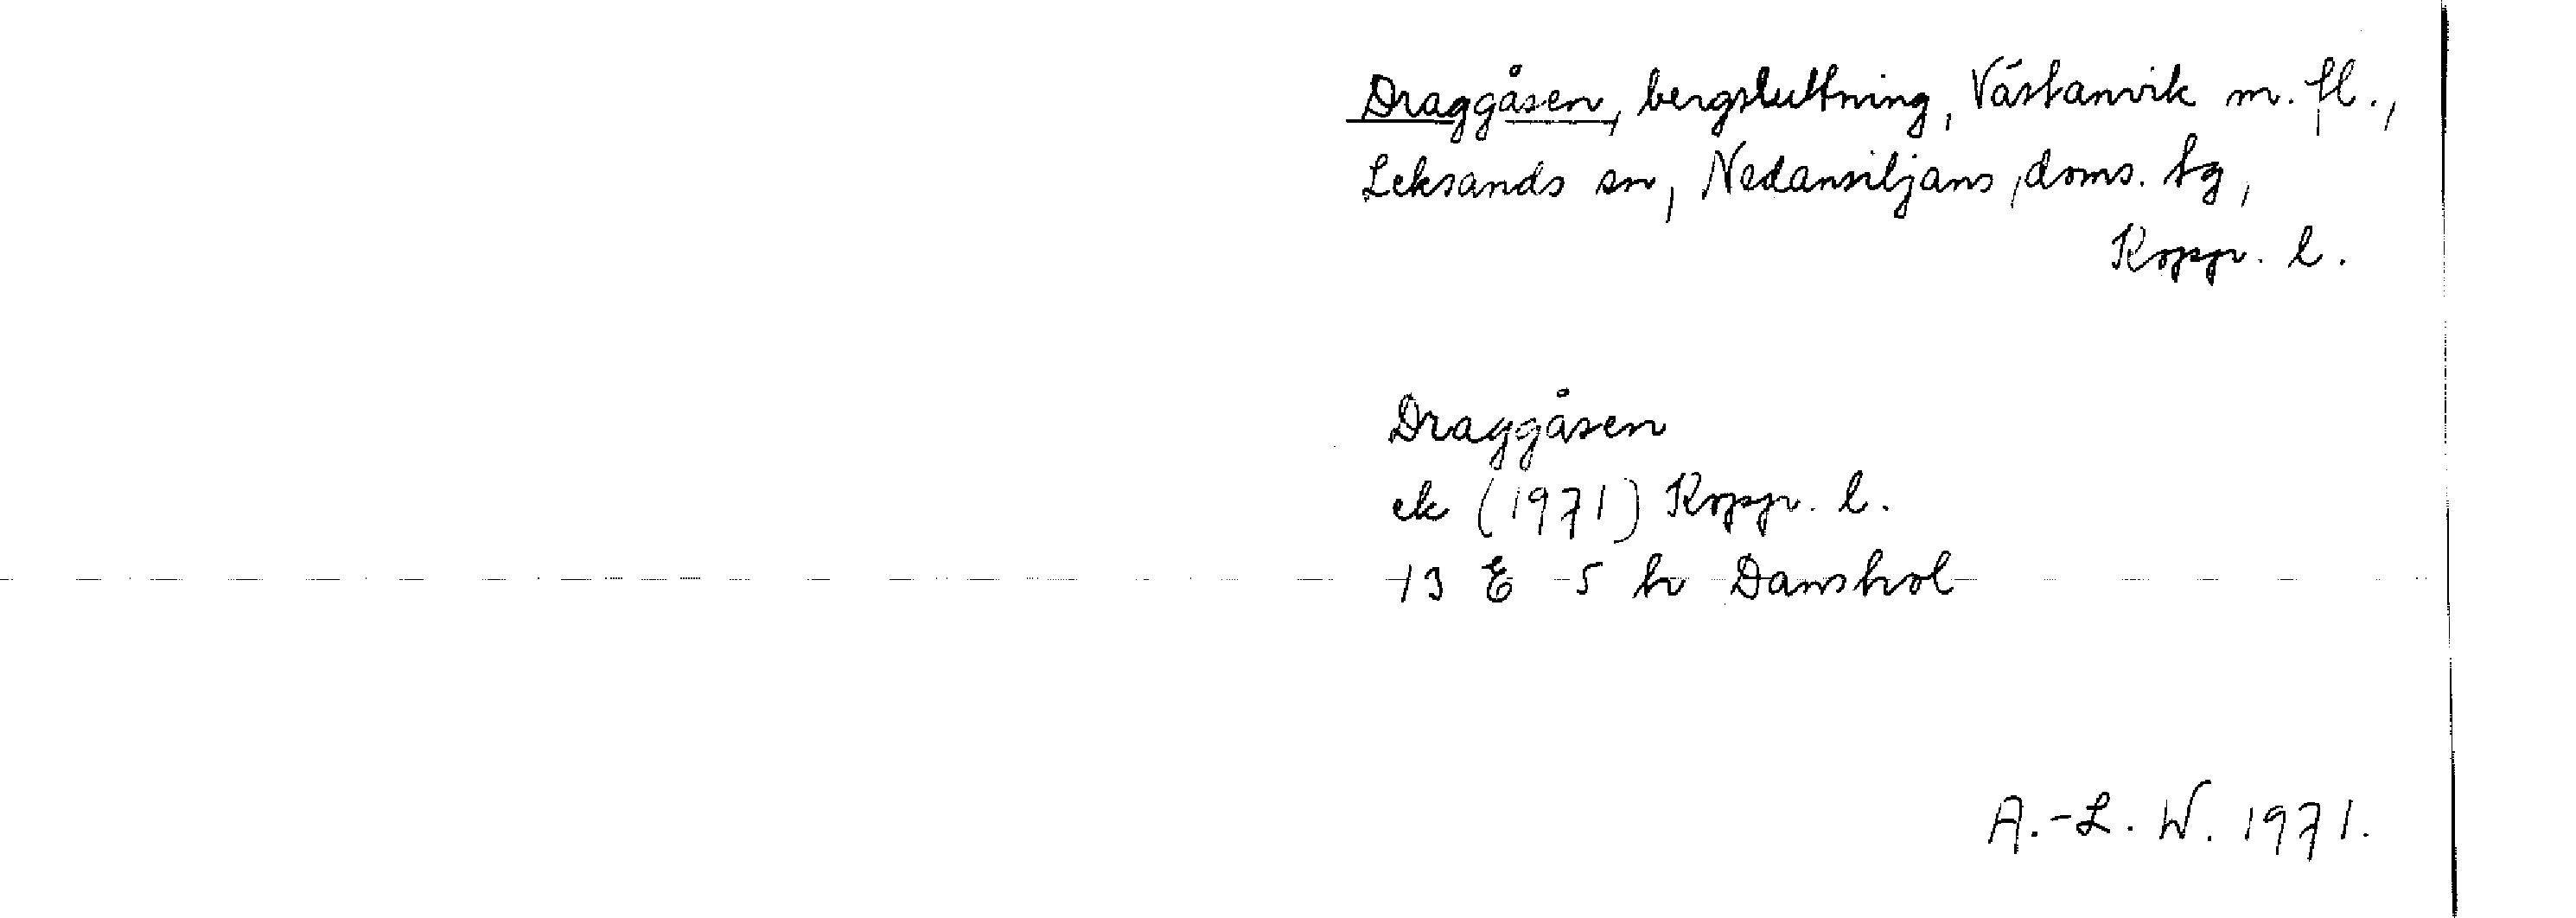 Draggåsen, bergsluttning, Västanvik m. fl.,
Leksands sn, Nedansiljans doms. tg,
Koppr. l.
Draggåsen
ek (1971) Koppr. l.
13 E 5 h Danshol
A.-L. W. 1971.